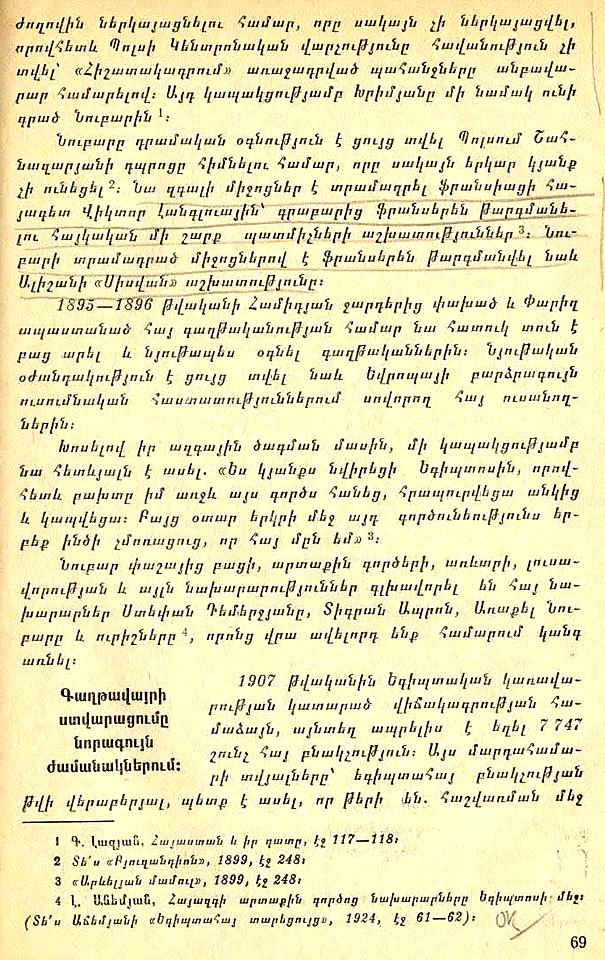 ժողովին ներկայացնելու համար, որը սակայն չի ներկայացվել,
որովհետև Պոլսի Կենտրոնական վարչությունը հավանություն չի
տվել՝ «Հիշատակագրում» առաջադրված պահանջները անբավա-
րար համարելով։ Այդ կապակցությամբ Խրիմյանը մի նամակ ունի
գրած Նուբարին 1։
Նուբարը դրամական օգնություն է ցույց տվել Պոլսում Շահ-
նազարյանի դպրոցը հիմնելու համար, որը սակայն երկար կյանք
չի ունեցել 2։ Նա զգալի միջոցներ է տրամադրել ֆրանսիացի հա-
յագետ Վիկտոր Լանգլուային՝ գրաբարից ֆրանսերեն թարգմանե-
լու հայկական մի շարք պատմիչների աշխատություններ 3։ Նու-
բարի տրամադրած միջոցներով է ֆրանսերեն թարգմանվել նաև
Ալիշանի «Սիսվան» աշխատությունը։
1895—1896 թվականի Համիդյան ջարդերից փախած և Փարիզ
ապաստանած հայ գաղթականության համար նա հատուկ տուն է
բաց արել և նյութապես օգնել գաղթականներին։ Նյութական
օժանդակություն է ցույց տվել նաև Եվրոպայի բարձրագույն
ուսումնական հաստատություններում սովորող հայ ուսանող-
ներին։
Խոսելով իր ազգային ծագման մասին, մի կապակցությամբ
նա հետևյալն է ասել. «Ես կյանքս նվիրեցի Եգիպտոսին, որով-
հետև բախտը իմ առջև այս գործս հանեց, հրապուրվեցա անկից
և կապվեցա։ Բայց օտար երկրի մեջ այդ գործունեությունս եր-
բեք ինծի չմոռացուց, որ հայ մըն եմ» 3։
Նուբար փաշայից բացի, արտաքին գործերի, առևտրի, լուսա-
վորության և այլն նախարարություններ գլխավորել են հայ նա-
խարարներ Ստեփան Դեմերջյանը, Տիգրան Ապրոն, Առաքել Նու-
բարը և ուրիշները 4, որոնց վրա ավելորդ ենք համարում կանգ
առնել։
Գաղթավայրի
ստվարացումը
նորագույն
ժամանակներում։
1907 թվականին Եգիպտական կառավա-
րության կատարած վիճակագրության հա-
մաձայն, այնտեղ ապրելիս է եղել 7 747
շունչ հայ բնակչություն։ Այս մարդահամա-
րի տվյալները՝ եգիպտահայ բնակչության
թվի վերաբերյալ, պետք է ասել, որ թերի են. հաշվառման մեջ
1 Գ. Լազյան, Հայաստան և իր դատը, էջ 117—118։
2 Տե՛ս «Բյուզանդիոն», 1899, էջ 248։
3 «Արևելյան մամուլ», 1899, էջ 248։
4 Լ. Աճեմյան, Հայազգի արտաքին գործոց նախարարները Եգիպտոսի մեջ։
(Տե՛ս Աճեմյանի «Եգիպտահայ տարեցույց», 1924, էջ 61—62)։ OK
69